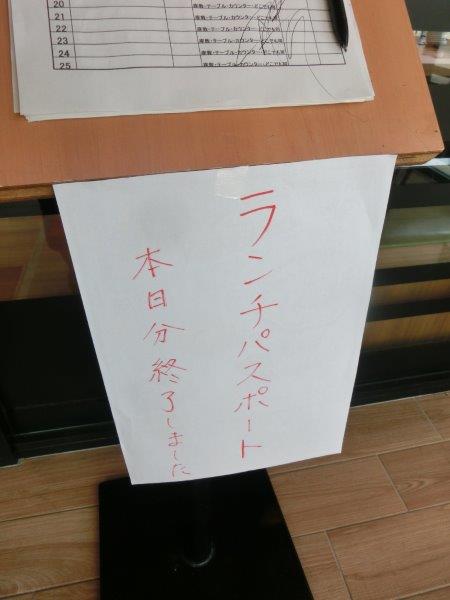 20
21 座敷・テーブル・カウンター・どこでも可
22 座敷・テーブル・カウンター・どこでも可
23 座敷・テーブル・カウンター・どこでも可
24 座敷・テーブル・カウンター・どこでも可
25 座敷・テーブル・カウンター・どこでも可
ランチパスポート
本日分終了しました